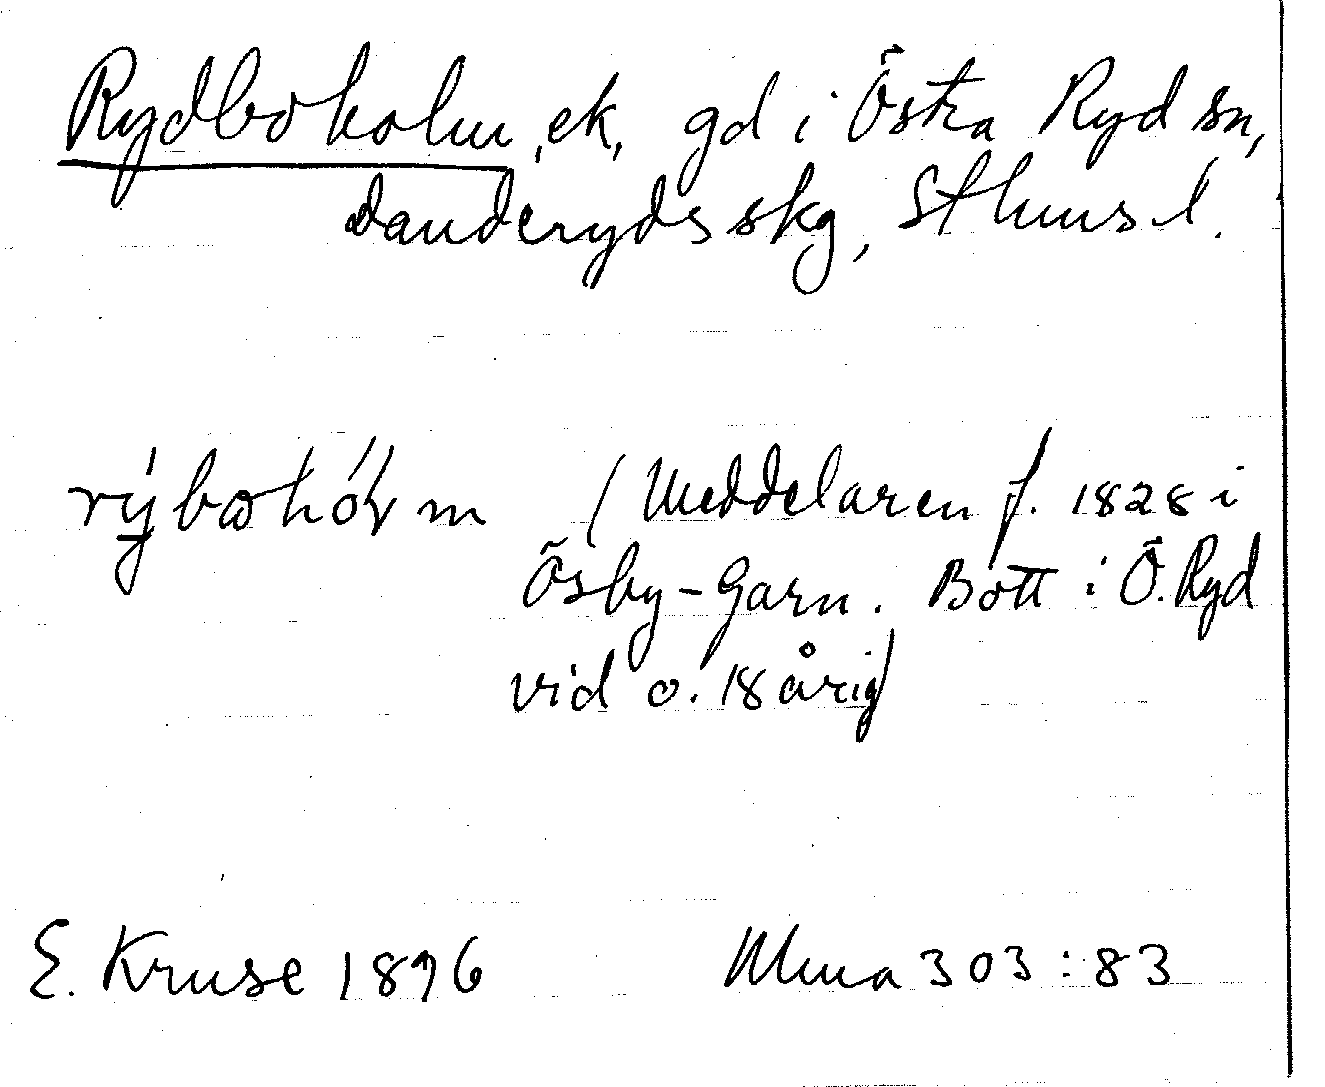 Rydboholm, ek, gd i Östra Ryd sn,
Danderyds skg, Sthms l.
(Meddelaren f. 1828 i
Ösby-Garn. Bott i Ö. Ryd
vid o. 18 årig)
E. Kruse 1896 Ulma 303:83